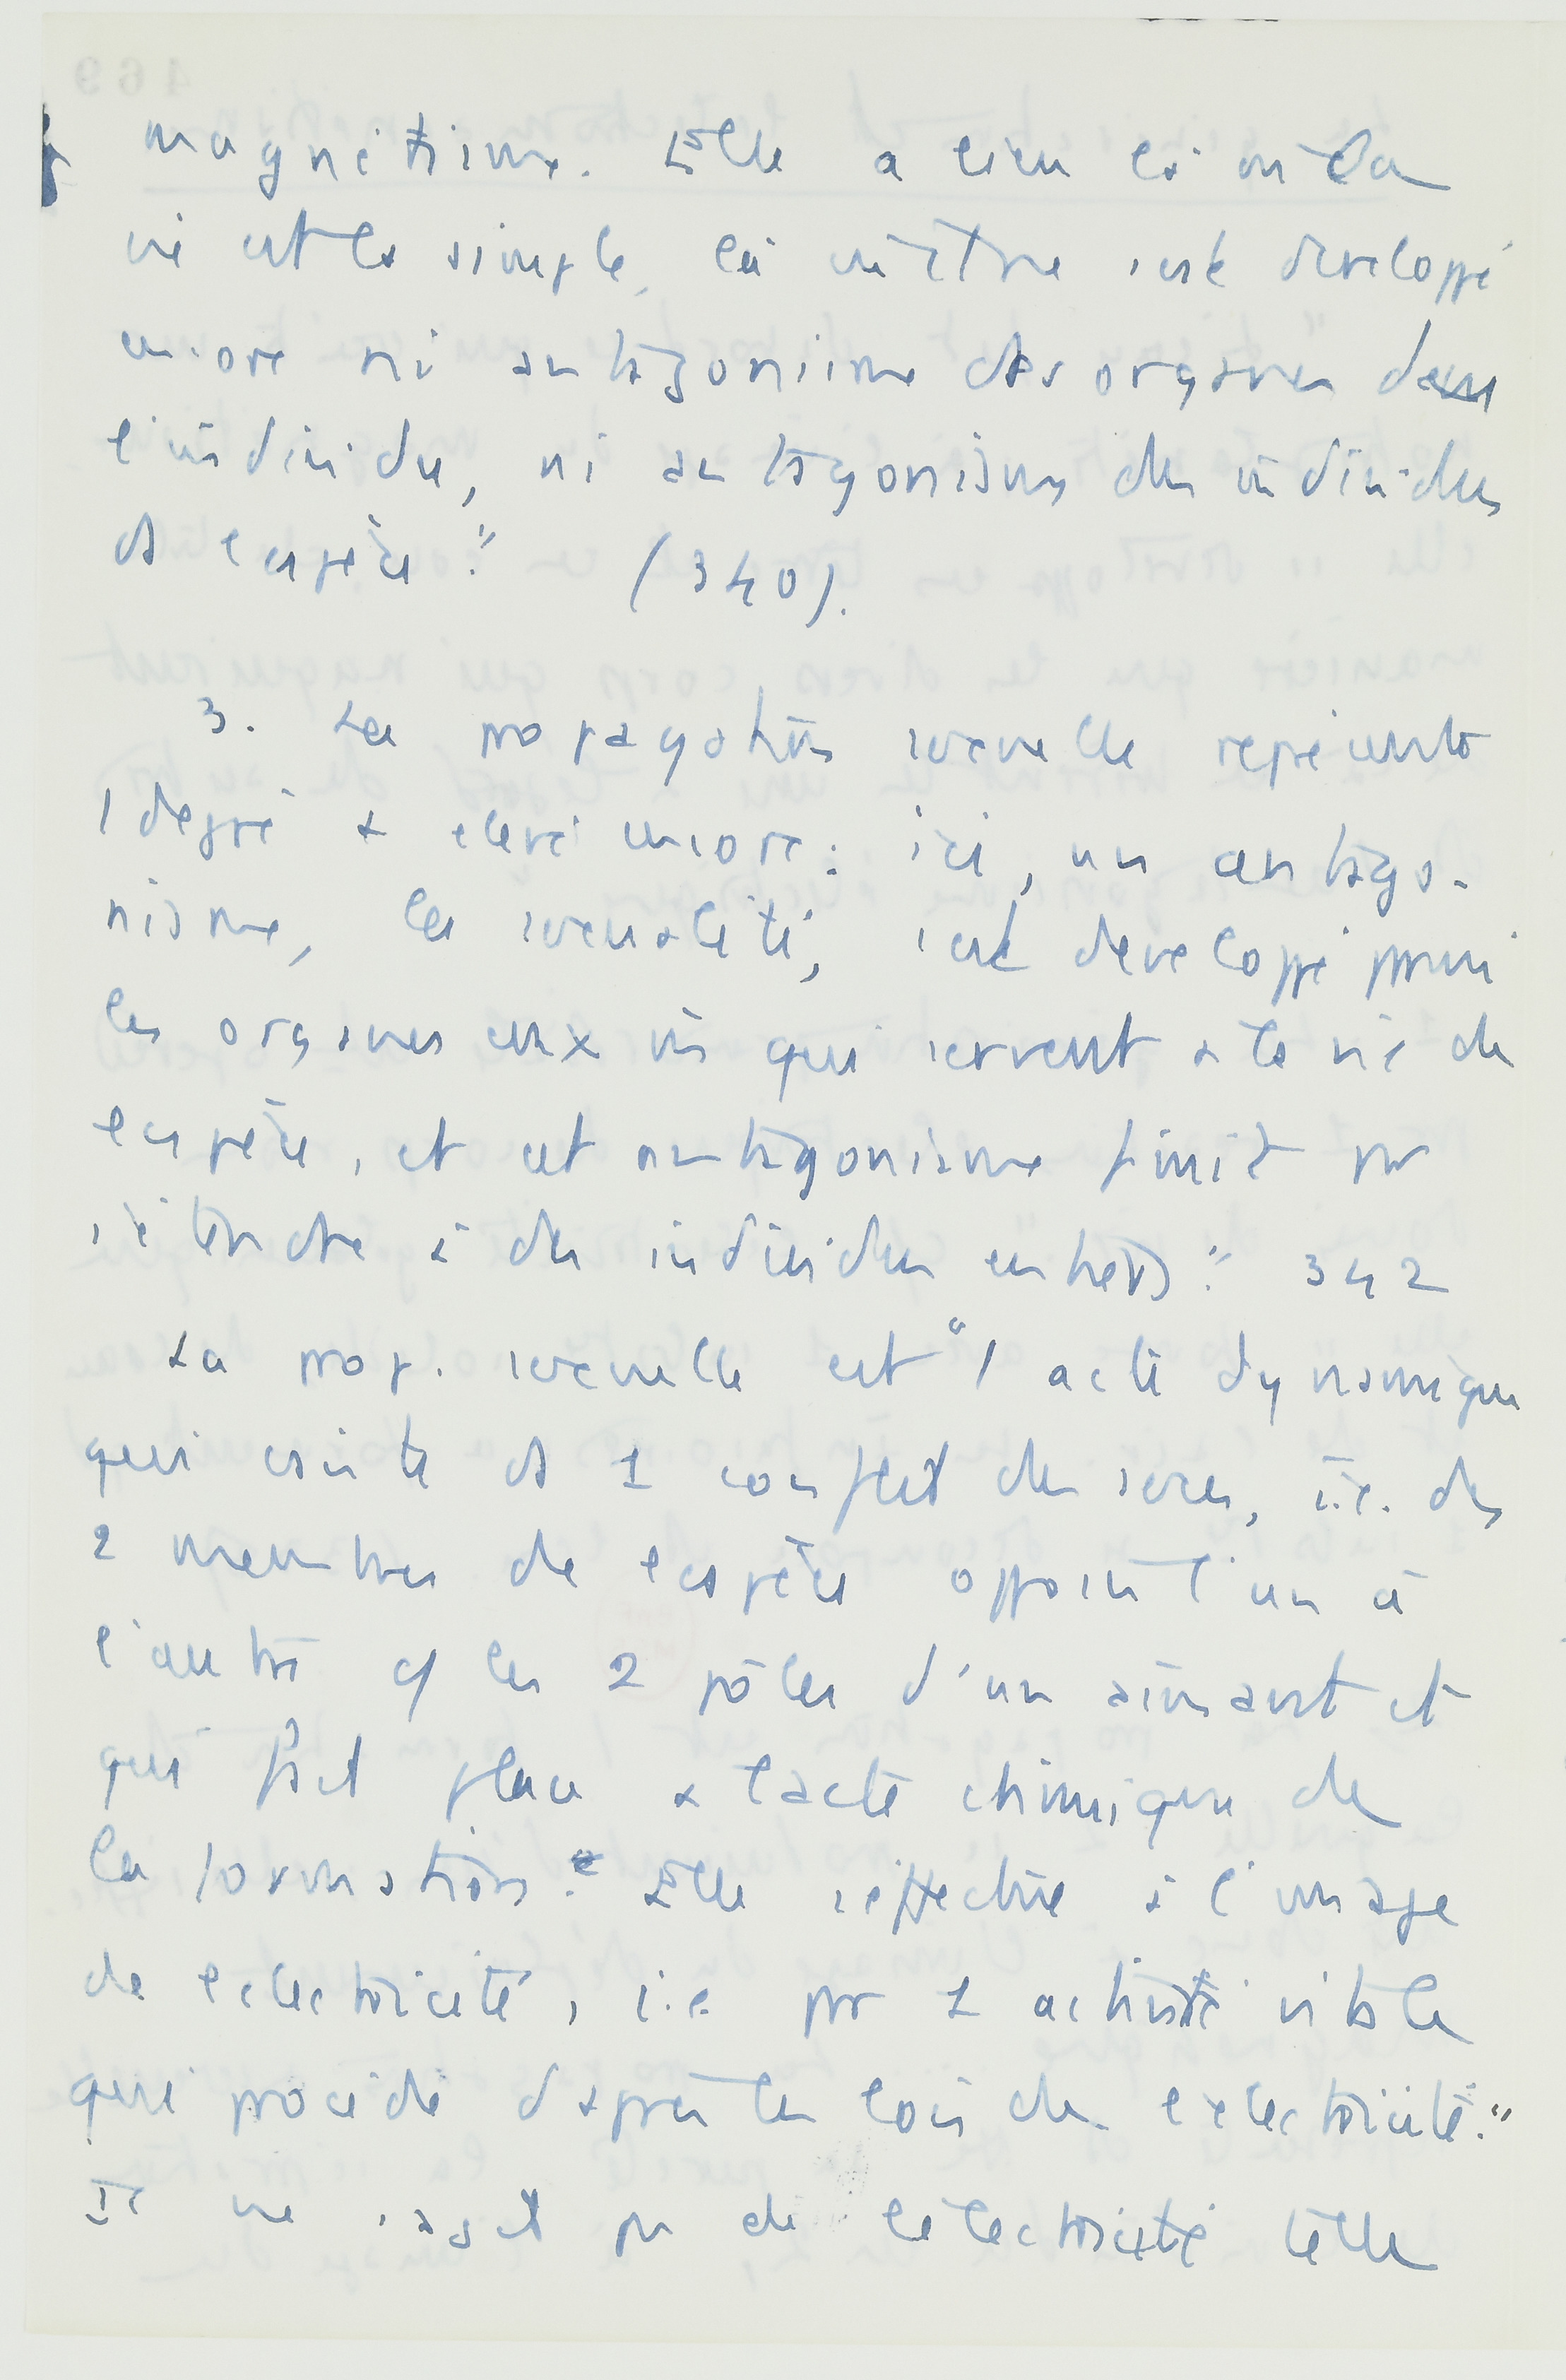 magnétisme. Elle a lieu là où la
vie est la simple, là où être s'est développé
encore ni antagonisme des organes dans
l'individu, ni antagonisme des individus
ds espèce." (340).
3. La propagation sexuelle représente
1 degré + élevé encore : ici, un antago-
nisme, la sexualité, s'est développé parmi
les organes eux mêmes qui servent à la vie de
espèce, et cet antagonisme finit par
s'étendre à des individus entiers." 342
La prop. sexuelle est "1 acte dynamique
qui existe ds 1 conflit des sexes, i.e. des
2 membres de espèce opposés l'un à
l'autre cf les 2 pôles d'un aimant et
qui fait place à l'acte chimique de
la formation." Elle s'effectue à l'image
de électricité, i.e par 1 activité vitale
qui procède d'après les lois de électricité."
Il ne s'agit pas de l'électricité telle
469